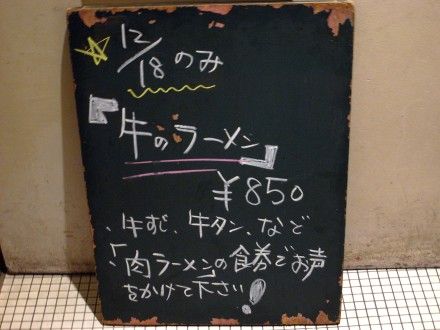 12/18のみ
『牛のラーメン』
¥850
、牛すじ、牛タン、など
「肉ラーメンの食券でお声
をかけて下さい!